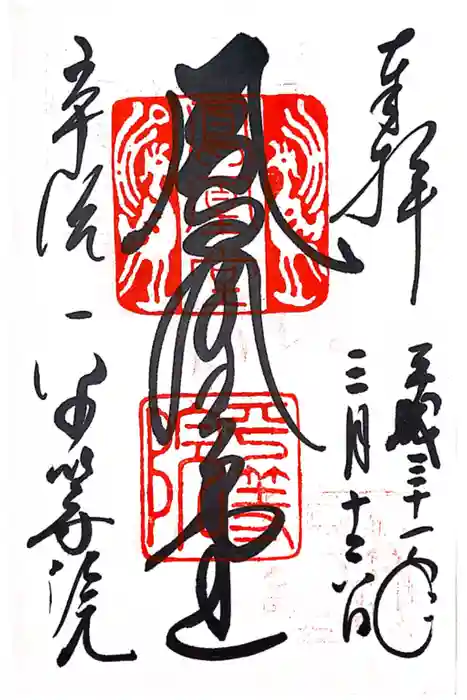 奉拝
平成三十一年
三月十三日
鳳凰堂
宇治
平等院
鳳凰堂
平等院